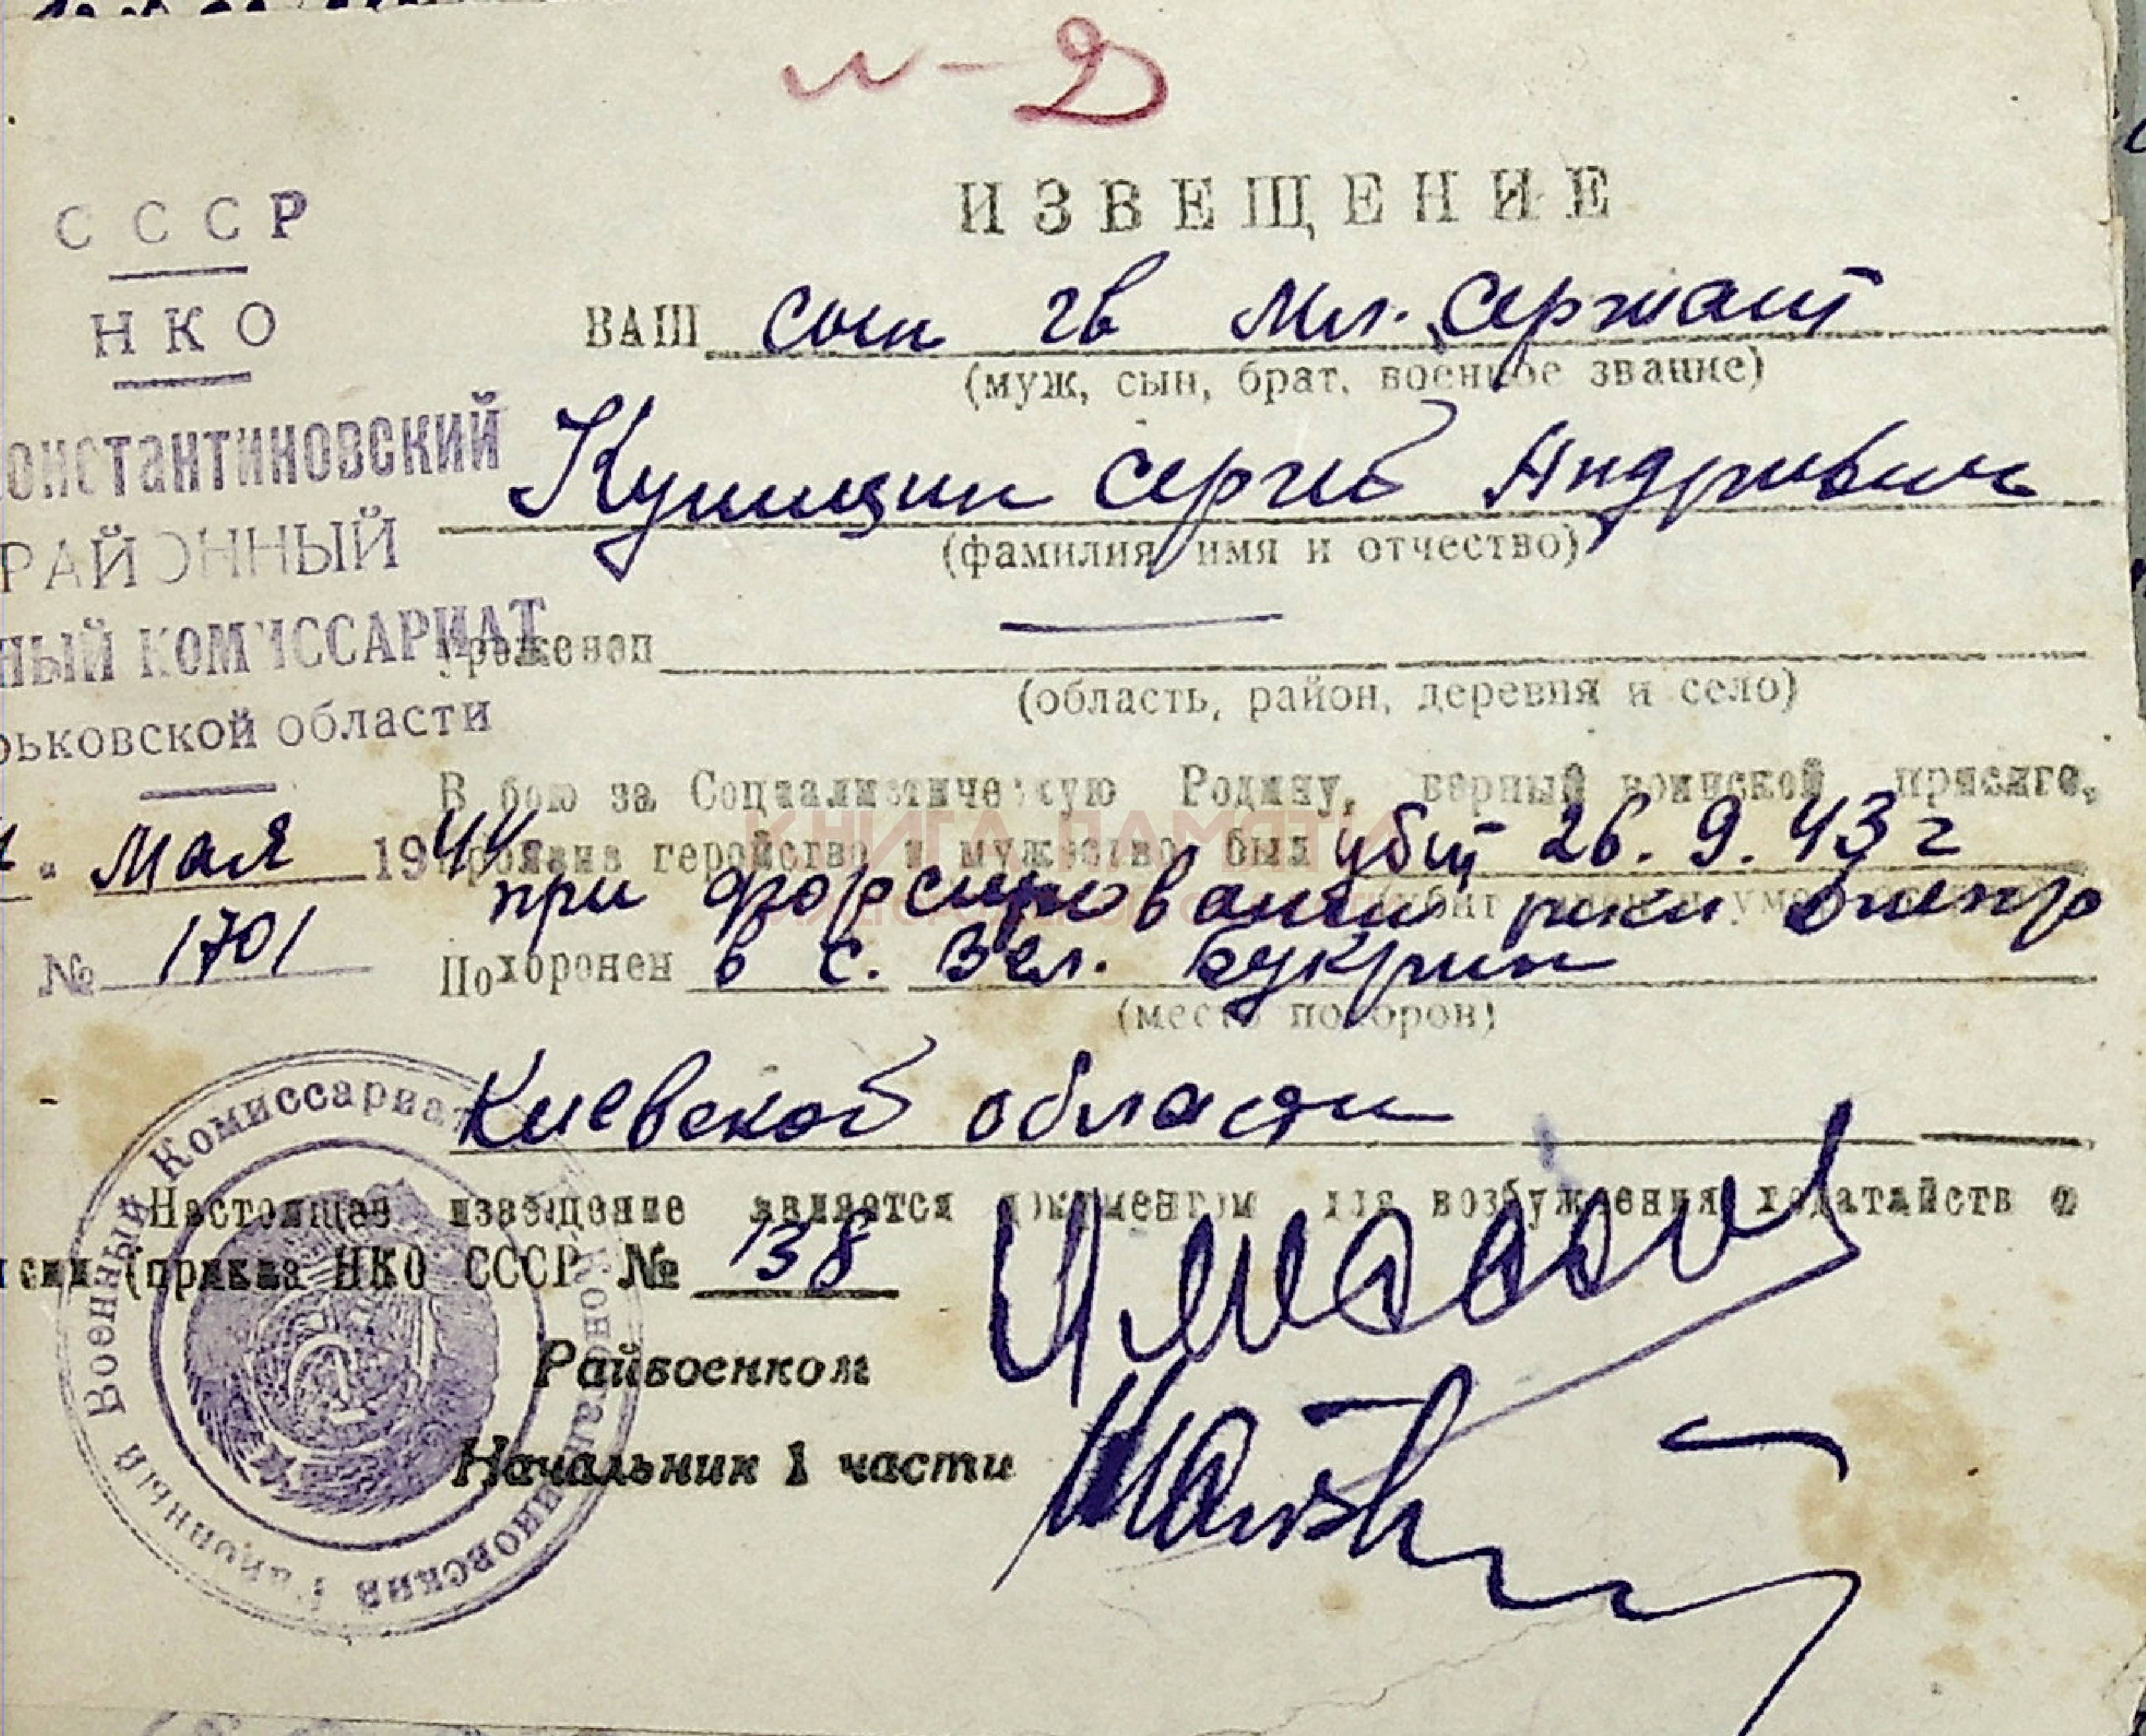 и-2
ИЗВЕЩЕНИЕ
СССР
НКО
онстантиновский
РАЙОННЫЙ
ный КОМИССАРИАТ
рьковской области
мая 1944
№ 1701
ВАШ сын гв мл. сержант
(муж, сын, брат, военное звание)
Сергей Андреевич
(фамилия имя и отчество)
Уроженец
(область, район, деревня и село)
В бою за Социалистическую Родину, верный воинской присяге,
проявив геройство и мужество, был убит 26.9.43 г
при форсировании реки Днепр
Похоронен в с. Вел. Букрин
(место похорон)
Киевской области
Настоящее извещение является документом для возбуждения ходатайств о
сии (приказ НКО СССР № 138
Райвоенком
Начальник 1 части
Константиновский Районный Военный Комиссариат
КНИГА ПАМЯТИ